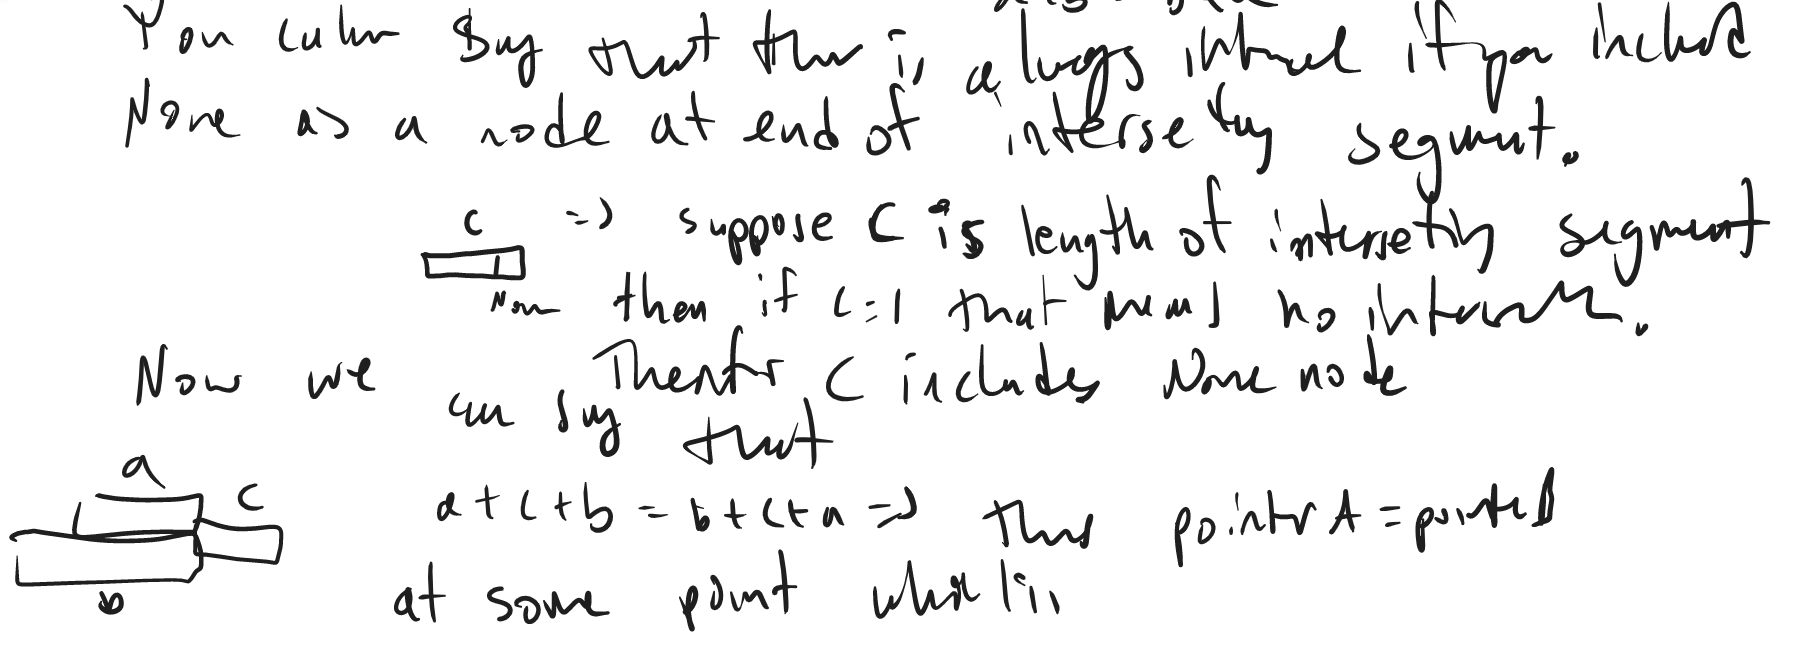 You can say that there is always intersect if you include
None as a node at end of intersecting segment.
C => suppose C is length of intersecting segment
None then if C=1 that means no intersect.
Now we Therefor C includes None node
can say that
a C a+C+b = b+C+a => thus pointer A = pointer B
b at some point while